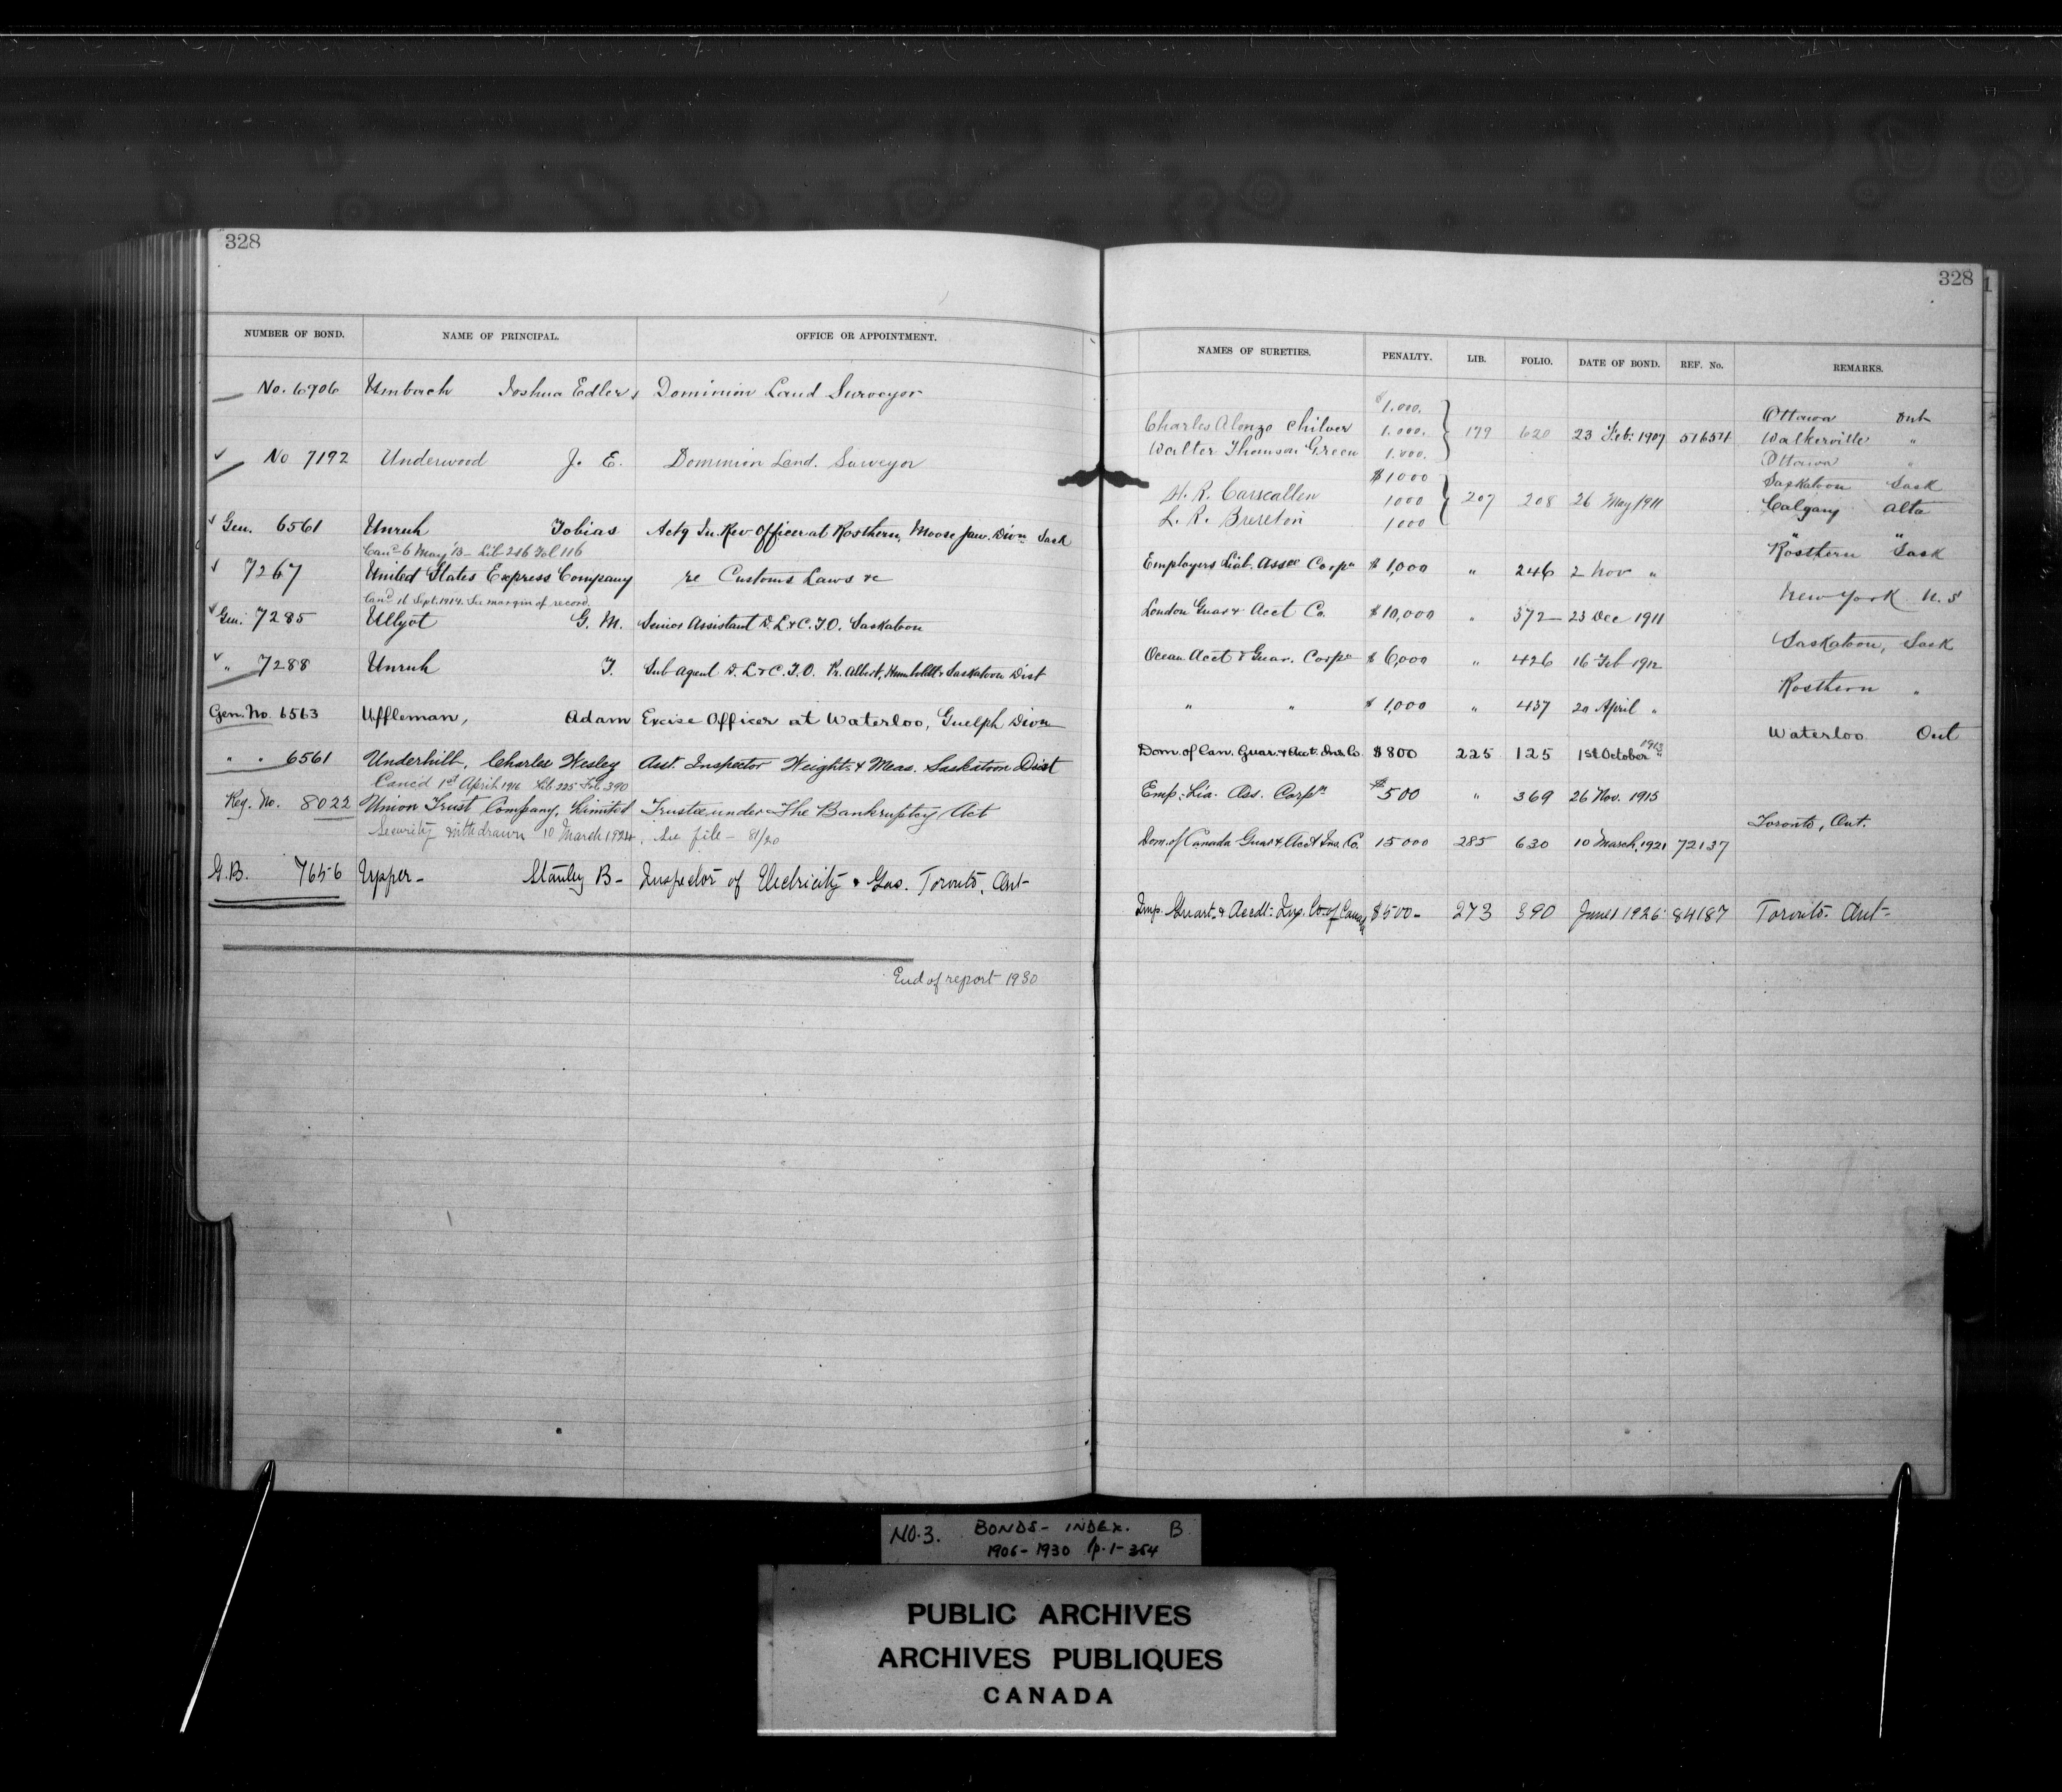 328
NUMBER OF BOND. NAME OF PRINCIPAL. OFFICE OR APPOINTMENT.
No. 6906 Umbach Joshua Edler Dominion Land Surveyor
No 7192 Underwood J. E. Dominion Land Surveyor
Gen. 6561 Unruh Tobias Actg In. Rev Officer at Rosthern, Moose Jaw Divn Sask
Canc 6 May '13 - Lib 216 Fol 116
7267 United States Express Company re Customs Laws &c
Cancd 11 Sept. 1914. See margin of record.
Gen. 7285 Ullyot G. M. Senior Assistant D. L & C. T. O. Saskatoon
" 7288 Unruh T. Sub Agent D. L & C. T. O. Pr. Albert, Humboldt & Saskatoon Dist
Gen. No. 6563 Uffleman, Adam Excise Officer at Waterloo, Guelph Divn
" " 6561 Underhill, Charles Wesley Asst. Inspector Weights & Meas. Saskatoon Dist
Canc'd 1st April 1916 Lib 225 Fol. 390
Reg. No. 8022 Union Trust Company, Limited Trustee under The Bankruptcy Act
Security withdrawn 10 March 1924. See file - 81/20
G.B. 7656 Upper - Stanley B - Inspector of Electricity & Gas. Toronto, Ont -
End of report 1930
328
NAMES OF SURETIES. PENALTY. LIB. FOLIO. DATE OF BOND. REF. No. REMARKS.
$1.000. Ottawa Ont
Charles Alonzo Chilver 1.000. 179 620 23 Feb: 1907 Walkerville "
Walter Thomson Green 1.000. Ottawa "
$1000 Saskatoon Sask
H. R. Carscallen 1000 207 208 26 May 1911 Calgary Alta
L. R. Brereton 1000 " "
Employers Liab. Assce Corpn $1,000 " 246 2 Nov " Rosthern Sask
London Guar & Acct Co. $10,000 " 372 23 Dec 1911 New York U.S
Ocean Acct & Guar. Corpn $6,000 " 426 16 Feb 1912 Saskatoon, Sask
" " $1,000 " 437 20 April " Rosthern "
Dom. of Can. Guar. & Acct. Ins. Co. $800 225 125 1st October 1913 Waterloo Ont
Emp: Lia. Ass. Corpn $500 " 369 26 Nov. 1915
Dom. of Canada Guar & Acct Ins. Co. 15000 285 630 10 March, 1921 72137 Toronto, Ont.
Imp. Guart. & Accdt: Ins. Co. of Canada $500- 273 390 June 1 1926 84187 Toronto. Ont-
NO. 3. BONDS - INDEX. B
1906 - 1930 p. 1 - 354
PUBLIC ARCHIVES
ARCHIVES PUBLIQUES
CANADA